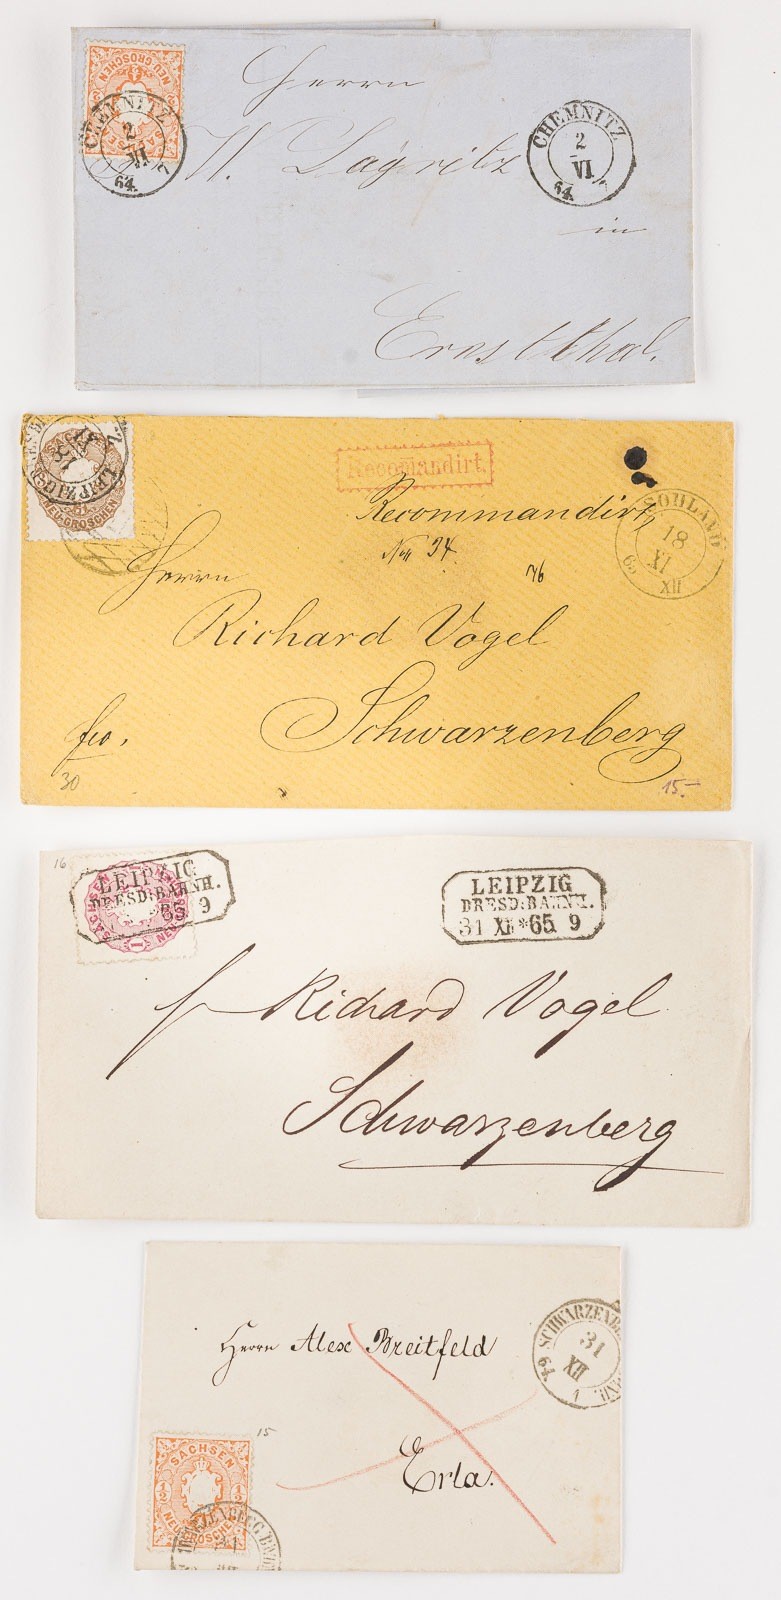 NEU GROSCHEN
Herrn
CHEMNITZ
2
VI
64.
CHEMNITZ
2
VI
64. 7
in
Ernstthal.
LEIPZIG
NEU-GROSCHEN
Recomandirt.
Recommandirt,
SOHLAND
18
XI
65
XII
Herrn
76
Richard Vogel
Schwarzenberg
fco.
30
15.-
16
LEIPZIG
DRESD:BAHNH.
65 9
SACHSEN
1
LEIPZIG
DRESD:BAHNH.
31 XII * 65 9
Richard Vogel
Schwarzenberg
Herrn Alex Breitfeld
Erla.
31
XII
64
15
SACHSEN
1/2 1/2
NEU-GROSCHEN